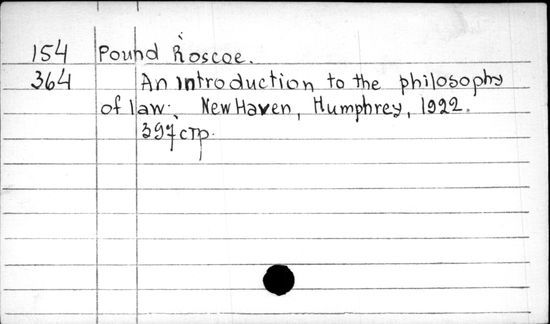 154 Pound Roscoe.
364 An introduction to the philosophy
of law. New Haven, Humphrey, 1922.
397 стр.